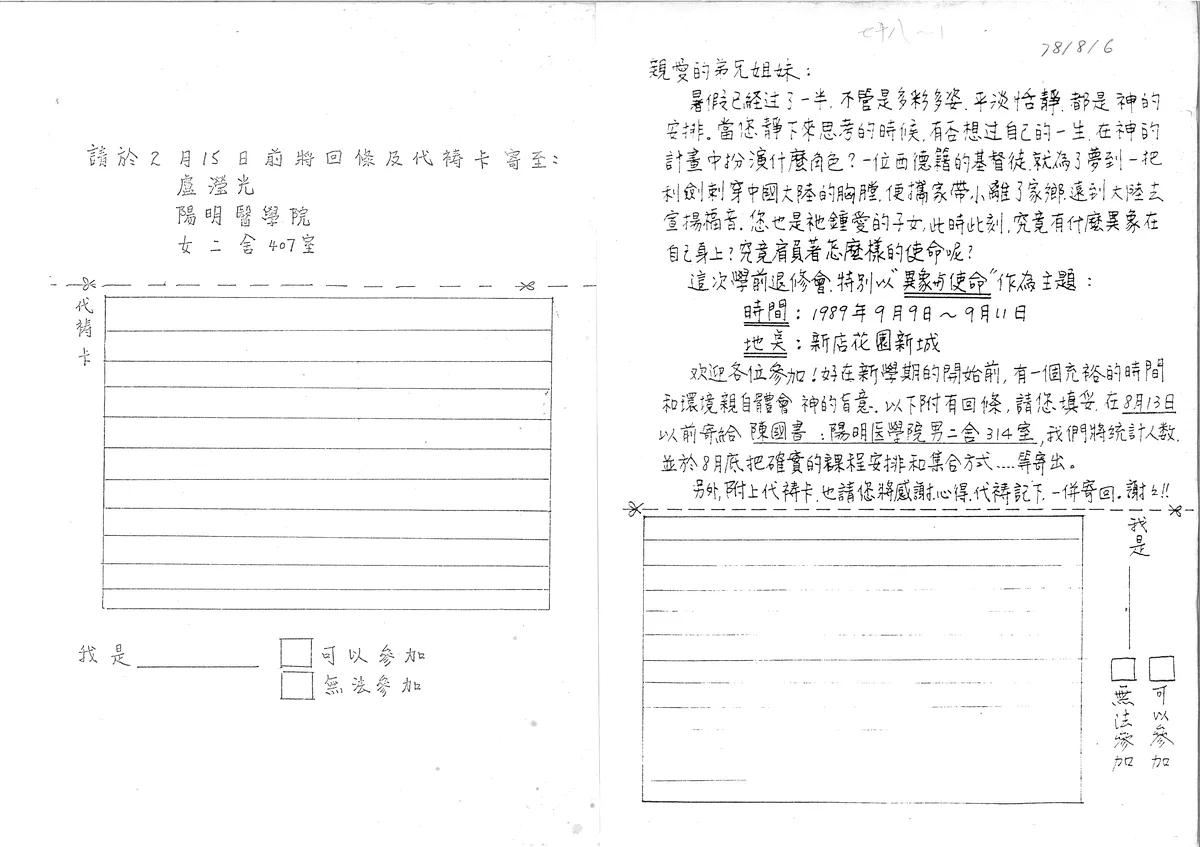 請於2月15日前將回條及代禱卡寄至:
盧瀅光
陽明醫學院
女二舍407室
代禱卡
我是
可以參加
無法參加
78/8/6
親愛的弟兄姐妹:
暑假已經过了一半.不管是多彩多姿.平淡恬靜.都是神的
安排。當您靜下來思考的時候.有否想过自己的一生.在神的
計畫中扮演什麼角色?一位西德籍的基督徒.就為了夢到一把
利劍刺穿中國大陸的胸膛.便攜家帶小離了家鄉.遠到大陸去
宣揚福音.您也是祂鍾愛的子女,此時此刻.究竟有什麼異象在
自己身上?究竟肩負著怎麼樣的使命呢?
這次學前退修會.特別以"異象与使命"作為主題:
時間:1989年9月9日~9月11日
地点:新店花園新城
欢迎各位參加!好在新學期的開始前,有一個充裕的時間
和環境親自體會 神的旨意.以下附有回條,請您填妥.在8月13日
以前寄給 陳國書:陽明医學院男二舍314室,我們將統計人数.
並於8月底把確實的課程安排和集合方式....等寄出。
另外,附上代禱卡.也請您將感謝.心得.代禱記下.一併寄回。謝々!!
我是
可以參加
無法參加